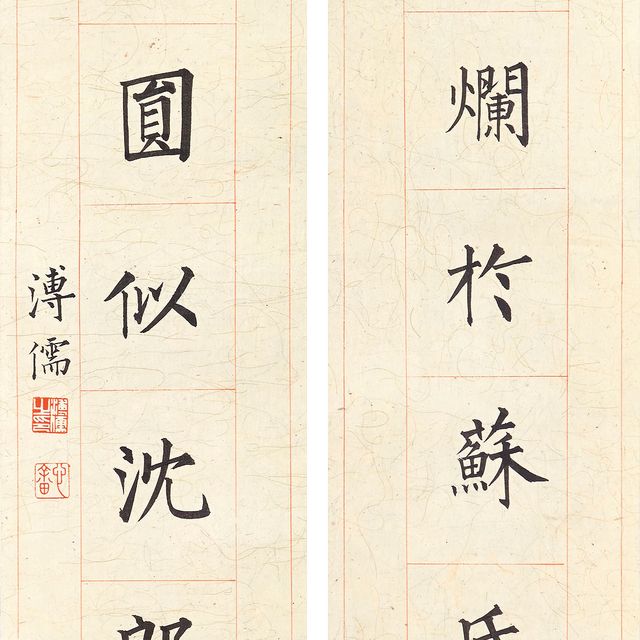 爛於蘇
圓似沈
溥儒